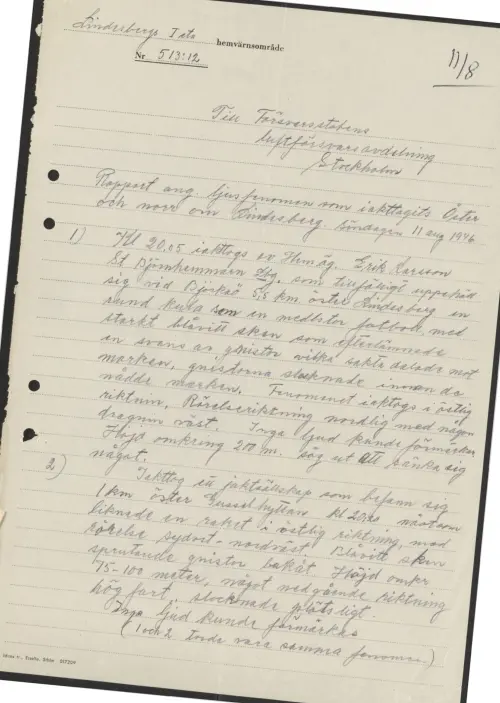 Lindesbergs
hemvärnsområde
Nr 513:12
11/8
Till Försvarsstabens
luftförsvarsavdelning
Stockholm
Rapport ang. ljusfenomen som iakttagits Öster
och norr om Lindesberg Söndagen 11 aug 1946
1) Kl 20.05 iakttogs av Hem.äg. Erik Larsson
St Björnhammarn som tillfälligt uppehöll
sig vid Björksö 5,5 km öster Lindesberg en
rund kula som en medelstor fotboll med
starkt blåvitt sken som efterlämnade
en svans av gnistor vilka sakta dalade mot
marken, gnistorna slocknade innan de
nådde marken. Fenomenet iakttogs i östlig
riktnin, Rörelseriktning nordlig med någon
dragnin väst. Inga ljud kunde förmärkas
Höjd omkring 200 m. såg ut att sänka sig
något.
2) Iakttog ett jaktsällskap som befann sig
1 km öster Gusselhyttan kl 20.00 näst som
liknade en raket i östlig riktning, med
rörelse sydost-nordväst. Blåvitt sken
sprutande gnistor bakåt Höjd omkr
75-100 meter, något nedgående riktning
hög fart, slocknade plötsligt.
Inga ljud kunde förmärkas
(1 och 2 torde vara samma fenomen)